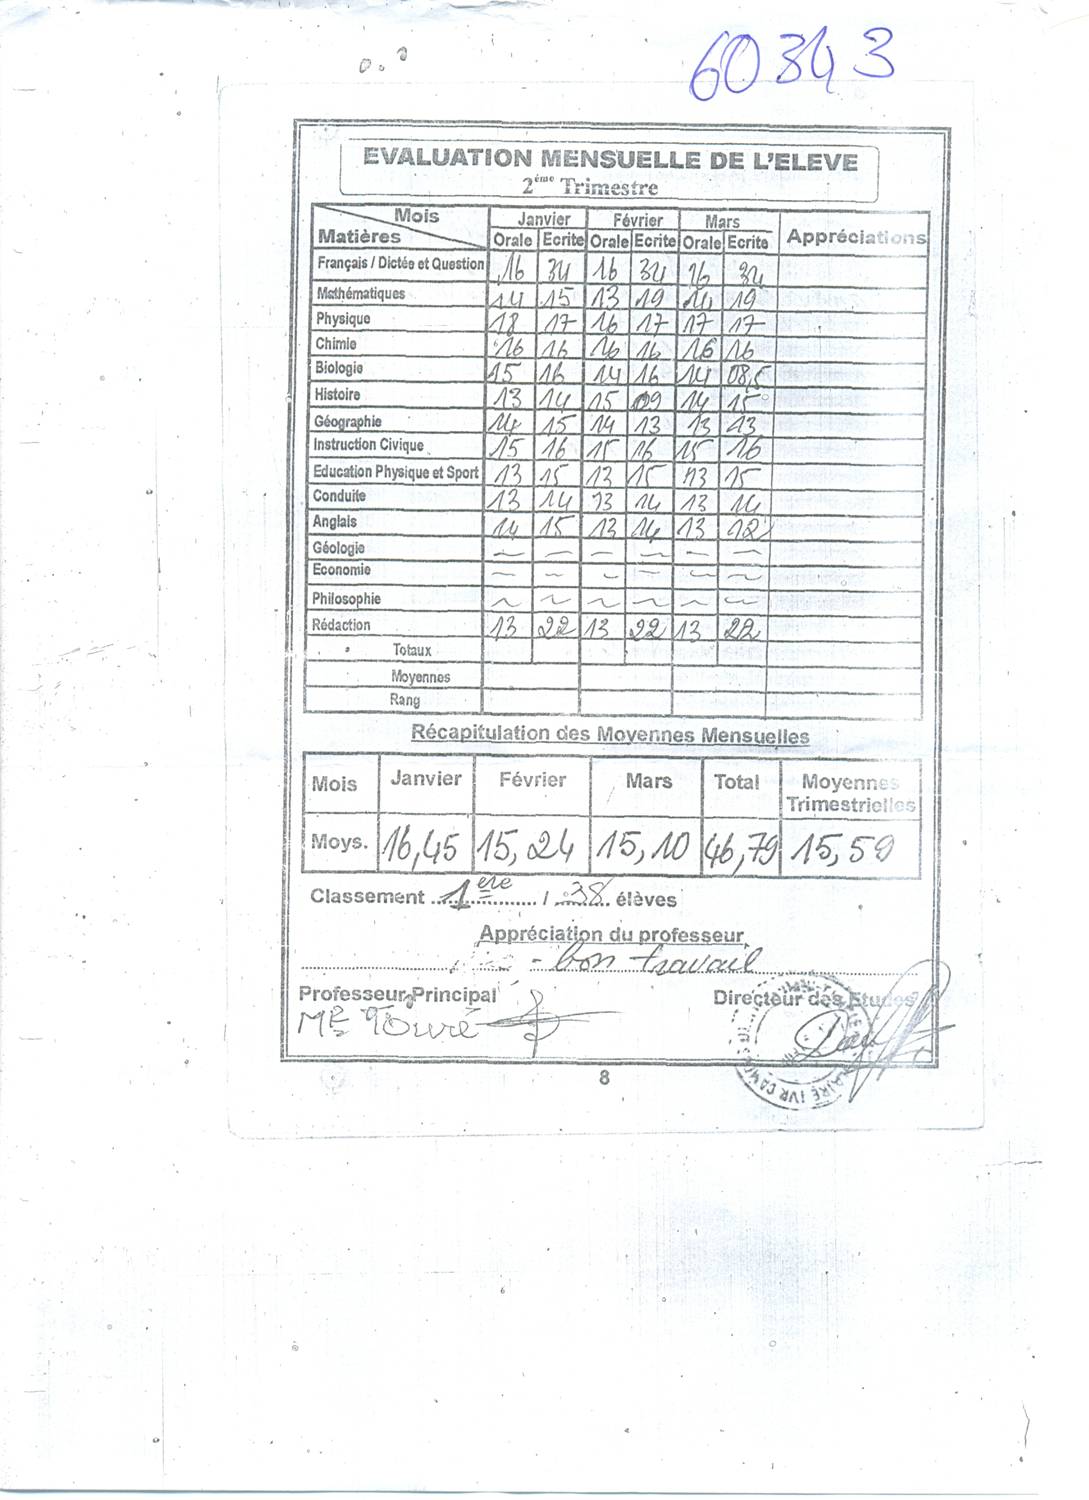 60343
EVALUATION MENSUELLE DE L'ELEVE
2ème Trimestre
Mois Janvier Février Mars Appréciations
Matières Orale Ecrite Orale Ecrite Orale Ecrite
Français / Dictée et Question 16 34 16 34 16 34
Mathématiques 14 15 13 19 14 19
Physique 18 17 16 17 17 17
Chimie 16 16 16 16 16 16
Biologie 15 16 14 16 14 08,5
Histoire 13 14 15 09 14 15
Géographie 14 15 14 13 13 13
Instruction Civique 15 16 15 16 15 16
Education Physique et Sport 13 15 13 15 13 15
Conduite 13 14 13 14 13 14
Anglais 14 15 13 14 13 12
Géologie
Economie
Philosophie
Rédaction 13 22 13 22 13 22
Totaux
Moyennes
Rang
Récapitulation des Moyennes Mensuelles
Mois Janvier Février Mars Total Moyennes Trimestrielles
Moys. 16,45 15,24 15,10 46,79 15,59
Classement 1ere / 38 élèves
Appréciation du professeur
- bon travail
Professeur Principal Directeur des Etudes
Mr Touré
8